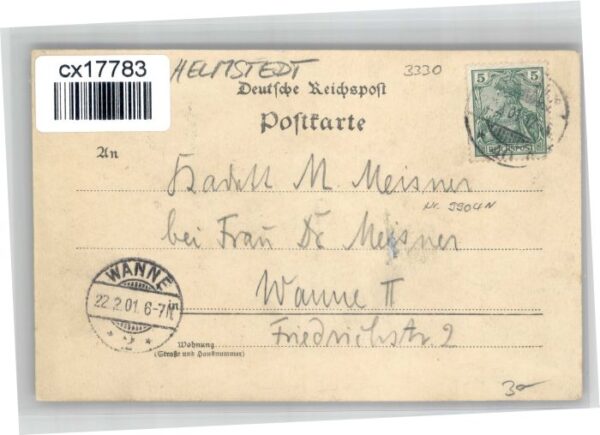 cx17783
HELMSTEDT
3330
Deutsche Reichspost
Postkarte
5 5
REICHSPOST
An
Kadett M. Meisner
Nr. 3304N
bei Frau Dr. Meisner
WANNE
22.2.01. 6-7N.
* 2 *
in
Wanne II
Friedrichstr. 2
Wohnung
(Straße und Hausnummer)
3-